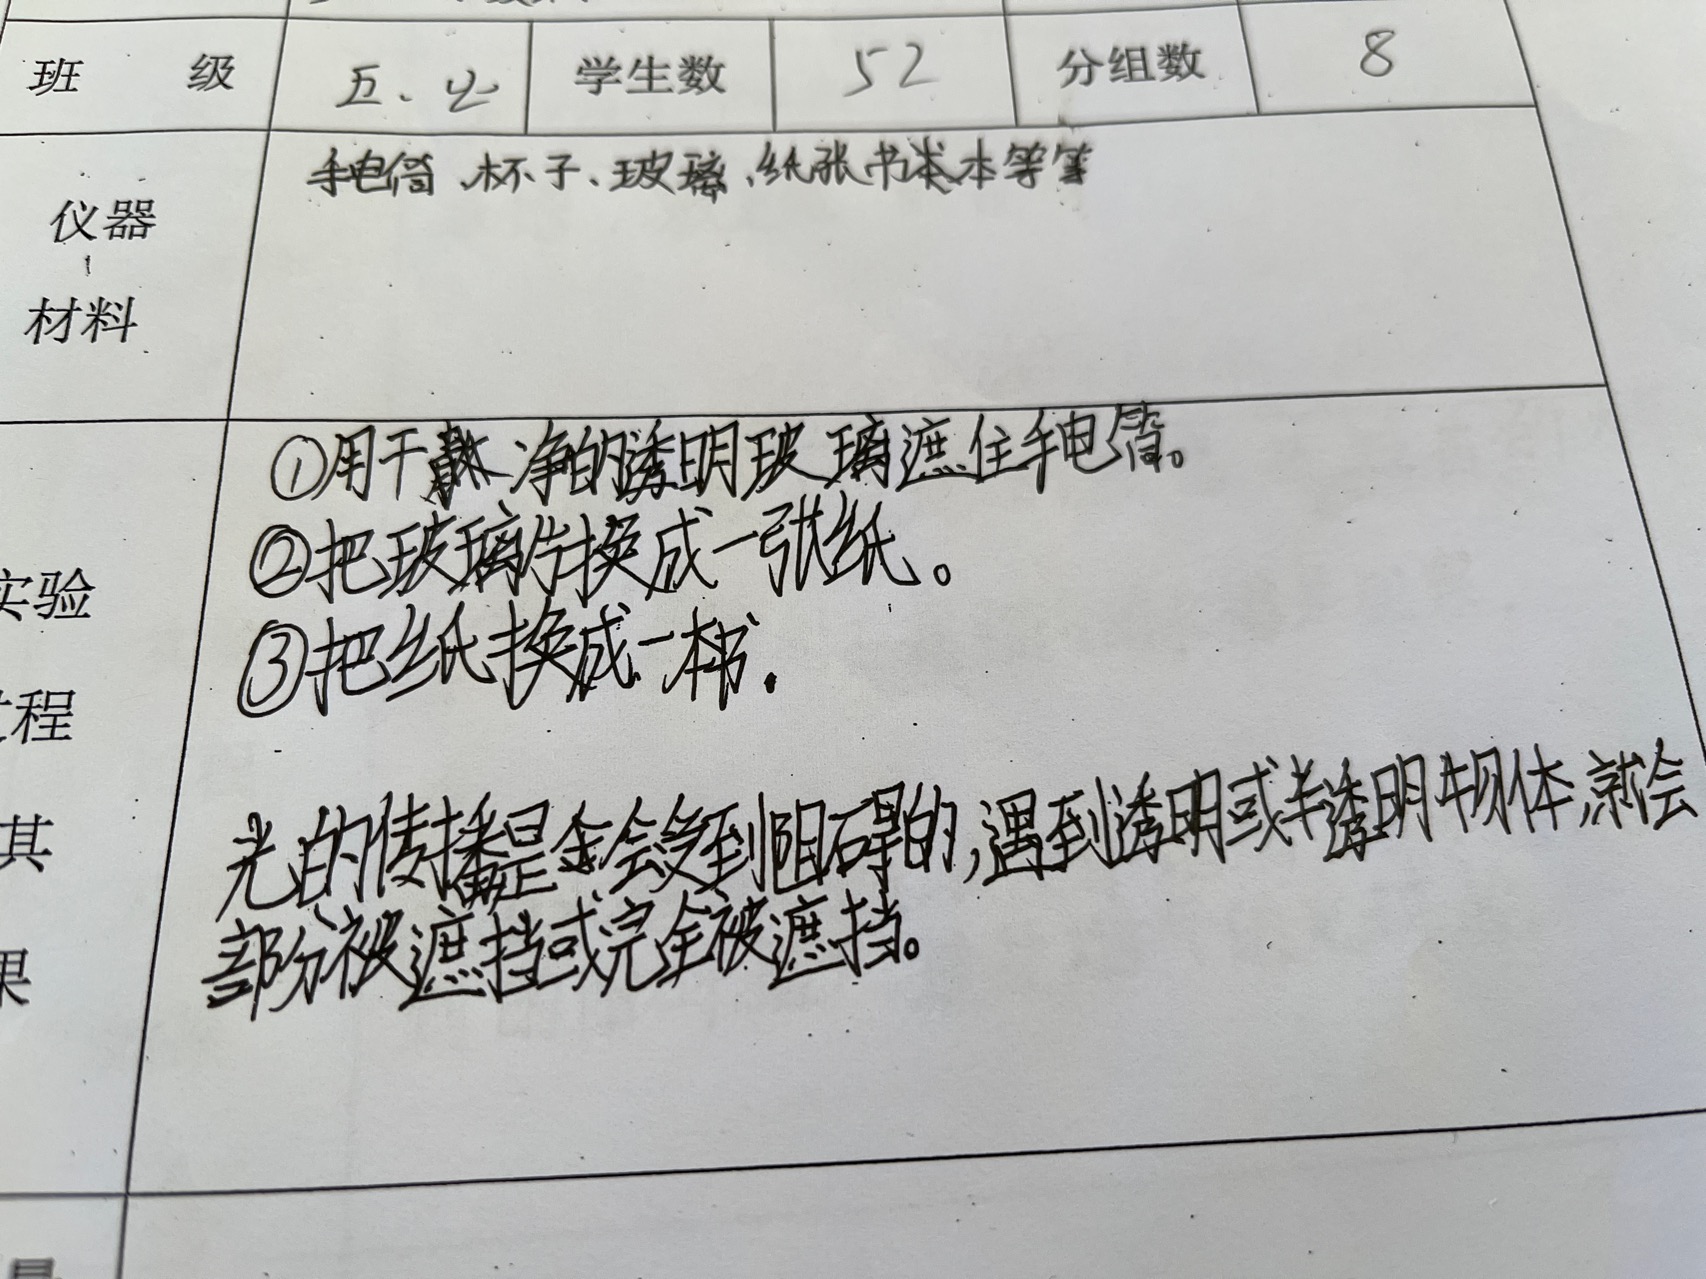 班 级 五、 学生数 52 分组数 8
手电筒、杯子、玻璃、纸张书本等等
仪器
材料
①用干净的透明玻璃遮住手电筒。
②把玻璃片换成一张纸。
实验
③把纸换成一本书.
过程
光的传播是会受到阻碍的,遇到透明或半透明物体,就会
其
部分被遮挡或完全被遮挡。
果